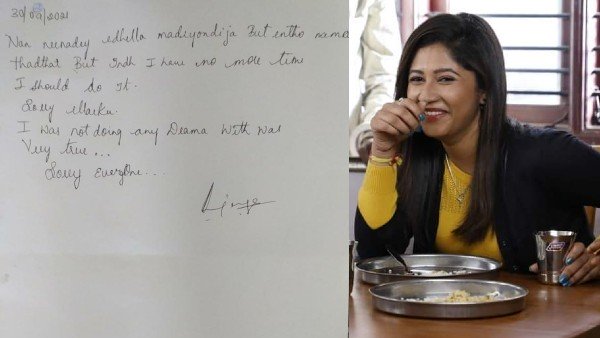 30/09/2021
Nan neenadey edhella madiyondija But entho name
thadthat But Indh I have no more time
I should do it.
Sorry
I was not doing any Drama With was
Very true...
Sorry EveryOne....